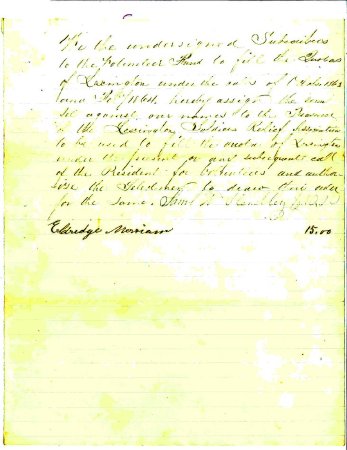 We the undersigned Subscribers
to the Volunteer Fund to fill the Quotas
of Lexington under the calls of October 1863
and Feb'y 1864, hereby assign the sum
set against our names to the Treasurer
of the Lexington Relief Association
to be used to fill the quota of Lexington
under the present or any subsequent call
of the President for Volunteers and autho
rise the to draw our order
for the same.
Eldredge Merriam 15.00